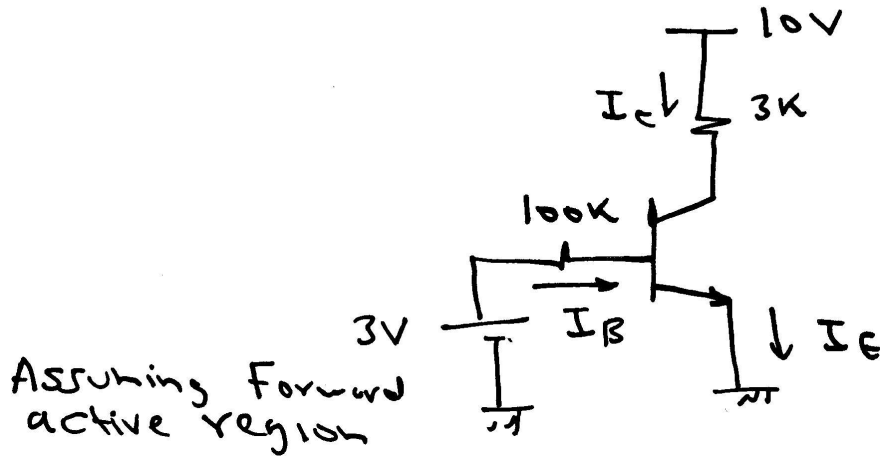 10V
I_C 3K
100K
I_B
3V
I_E
Assuming Forward
active region